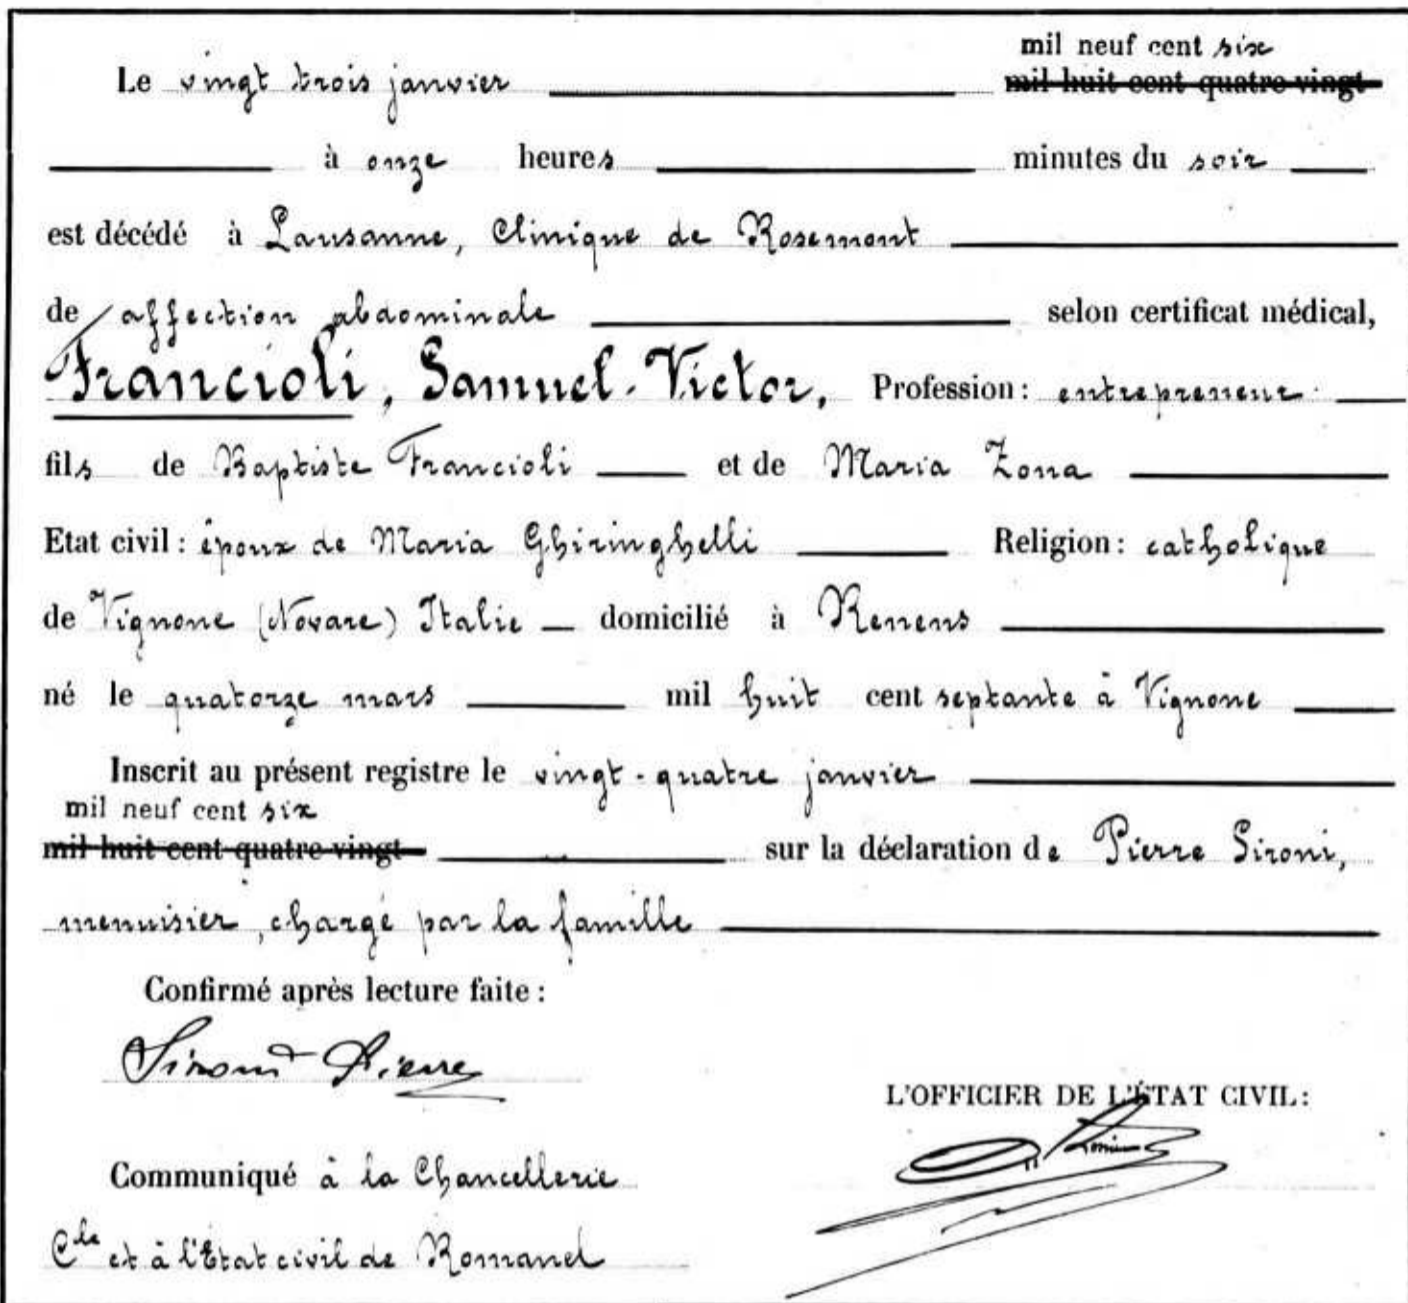 mil neuf cent six
Le vingt trois janvier mil huit cent quatre vingt
à onze heures minutes du soir
est décédé à Lausanne, Clinique de Rosemont
de affection abdominale selon certificat médical,
Francioli, Samuel-Victor, Profession: entrepreneur
fils de Baptiste Francioli et de Maria Zona
Etat civil: époux de Maria Ghiringhelli Religion: catholique
de Vignone (Novare) Italie domicilié à Renens
né le quatorze mars mil huit cent septante à Vignone
Inscrit au présent registre le vingt-quatre janvier
mil neuf cent six
mil huit cent quatre vingt sur la déclaration de Pierre Sironi,
menuisier, chargé par la famille
Confirmé après lecture faite:
Sironi Pierre
L'OFFICIER DE L'ÉTAT CIVIL:
Communiqué à la Chancellerie
Cle et à l'Etat civil de Romanel